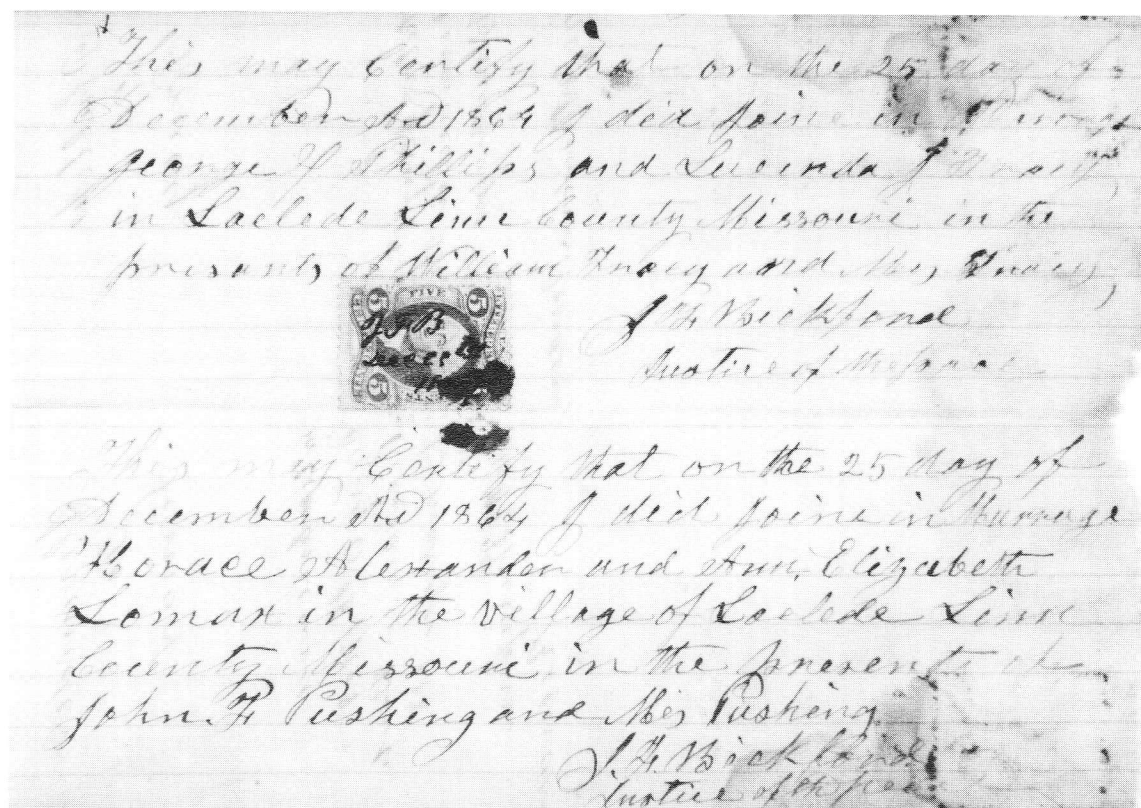 This may Certify that on the 25 day of
December AD 1864 I did Joine in
George Phillips and Lucinda J
in Laclede Linn County Missouri in the
presants of William Tracy and Mrs Tracy
J F Bickford
Justice of the peace
FIVE
5 5
J F B
Dec 25
5 5
This may Certify that on the 25 day of
December AD 1864 I did Joine in Marrage
Horace Alexander and Ann Elizabeth
Lomax in the Village of Laclede Linn
County Missouri in the presents of
John F Pushing and Mrs Pushing
J. F. Bickford
Justice of the peace